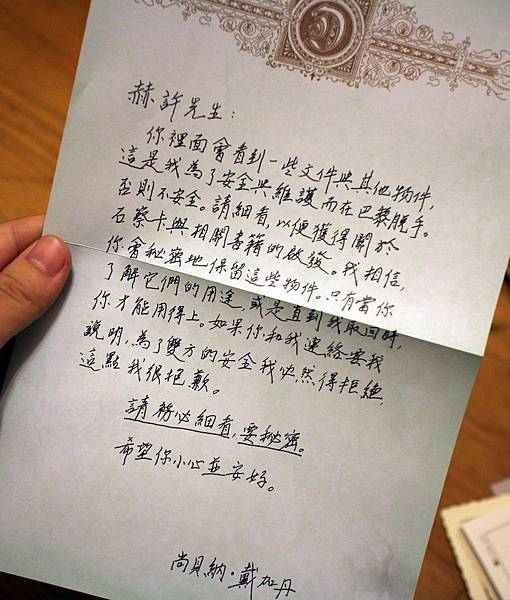 赫許先生:
你裡面會看到一些文件與其他物件,
這是我為了安全與維護而在巴黎脫手。
否則不安全。請細看,以便獲得關於
石蔡卡與相關書籍的啟發。我相信
你會秘密地保留這些物件。只有當你
了解它們的用途,或是直到我取回時,
你才能用得上。如果你和我連絡要我
說明,為了雙方的安全我必然得拒絕,
這點我很抱歉。
請務必細看,要秘密。
希望你小心並安好。
尚貝納·戴加丹